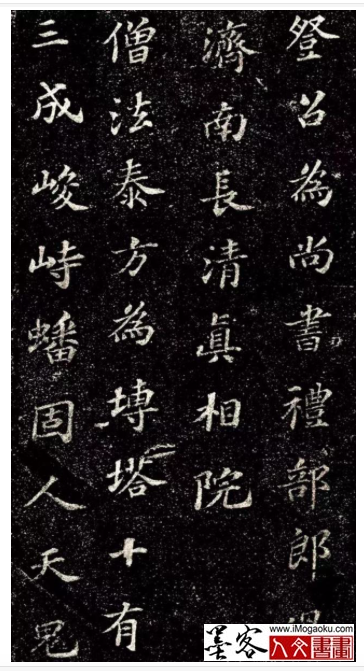 登召為尚書禮部郎
濟南長清眞相院
僧法泰方為塼塔十有
三成峻峙蟠固人天鬼
墨客
www.iMogaoku.com
人文書畫